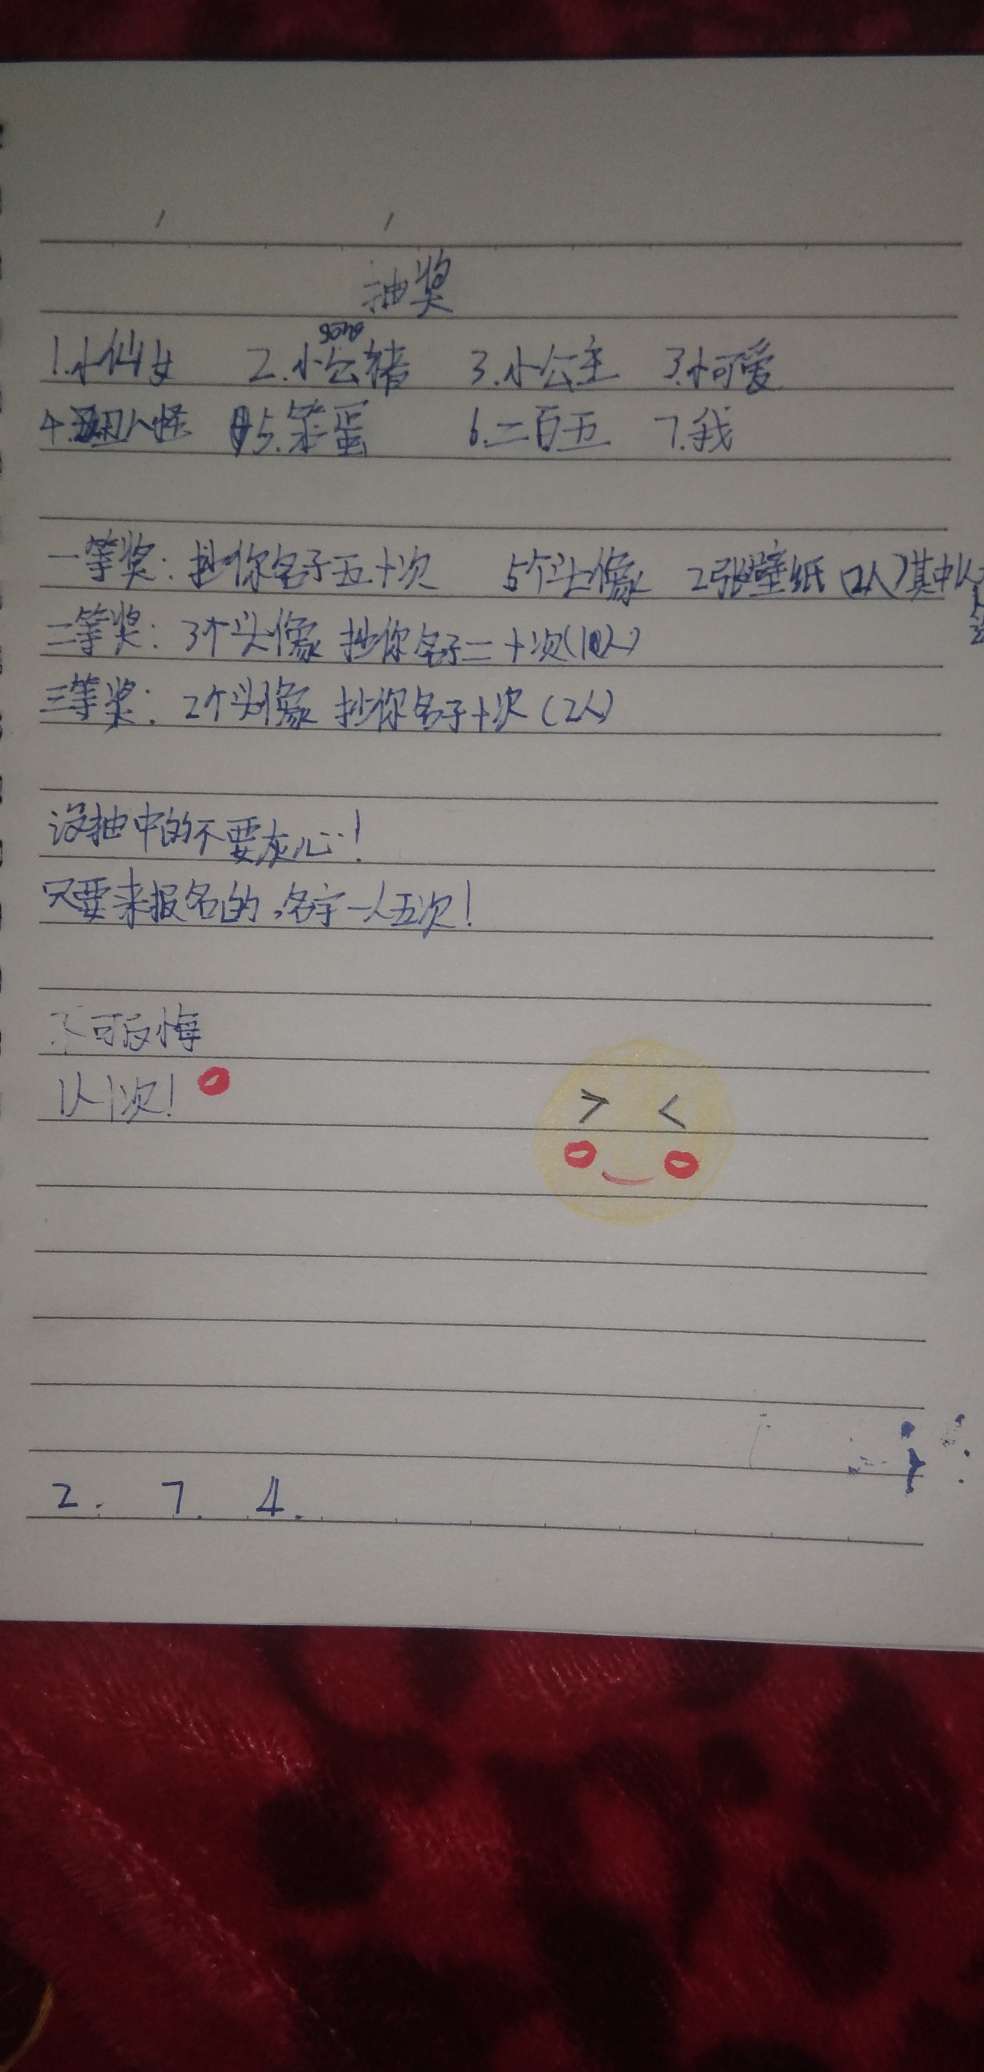 抽奖
song
1.小仙女 2.小公猪 3.小公主 3.小可爱
4.人怪 5.笨蛋 6.二百五 7.我
一等奖:抄你名子五十次 5个头像 2张壁纸(2人)其中
二等奖:3个头像 抄你名子二十次(1人)
三等奖:2个头像 抄你名子十次(2人)
没抽中的不要灰心!
只要来报名的,名字一人五次!
不可反悔
1人1次!
> <
2. 7. 4.